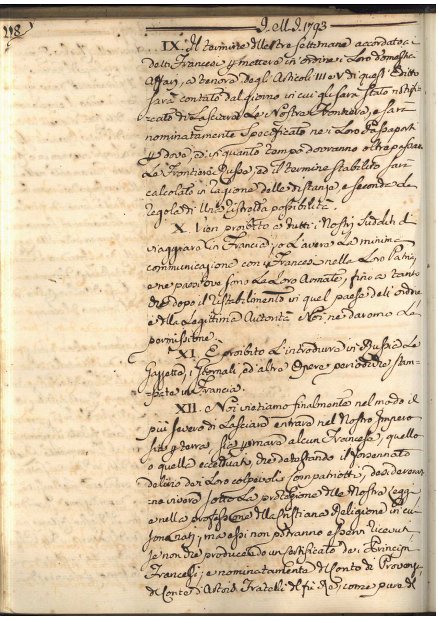 118
I. M. I. 1793
IX. Il termine delle tre Settimane accordato ai
detti Francesi p mettere in ordine i Loro domestici
Affari, a tenore degli Articoli III e V di quest' Editto
Sarà contato dal giorno in cui gli Sarà Stato notifi-
cato di Lasciare Le Nostre Frontiere, e sarà
nominatamente Specificato ne i Loro Passaporti
p dove, ed in quanto tempo dovranno oltrepassare
Le Frontiere Russe, ed il termine stabilito sarà
calcolato in ragione delle distanze, e secondo la
regola di Una ristretta possibilità.
X. Vien proibito a tutti i Nostri Sudditi di
viaggiare in Francia, o L'avere La minima
communicazione con i Francesi nella Loro Patria,
e ne paesi ove sono Le Loro Armate, fino a tanto
che dopo il ristabilimento in quel paese dell' ordine
e della Legittima Autorità Noi ne daremo La
permissione.
XI. È proibito L'introdurre in Russia Le
Gazzette, i Giornali, ed altre Opere periodiche stam-
pate in Francia.
XII. Noi vietiamo finalmente nel modo il
più severo di Lasciare entrare nel Nostro Impero
sia p terra, sia p mare alcun Francese, quello
o quelle eccettuati, che detestando il forsennato
delirio dei Loro colpevoli Compatriotti, desiderano
vivere sotto La protezione delle Nostre Leggi
e nella professione della Cristiana Religione in cui
sono nati; ma essi non potranno essere ricevuti
se non che producendo un certificato de i Principi
Francesi, e nominatamente del Conte di Provenza
del Conte d'Artois Fratelli del fù Rè, come pure del